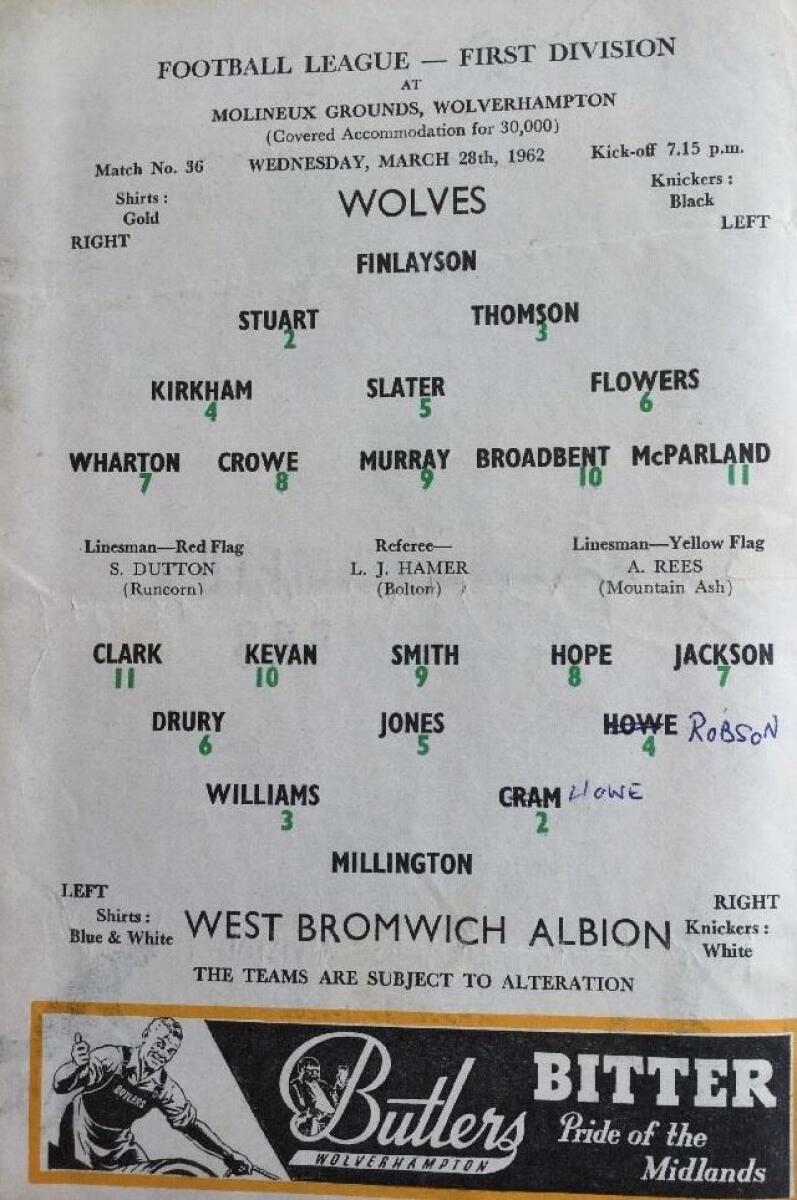 FOOTBALL LEAGUE — FIRST DIVISION
AT
MOLINEUX GROUNDS, WOLVERHAMPTON
(Covered Accommodation for 30,000)
Match No. 36 WEDNESDAY, MARCH 28th, 1962 Kick-off 7.15 p.m.
Shirts: Gold
WOLVES
Knickers: Black
RIGHT LEFT
FINLAYSON
STUART THOMSON
2 3
KIRKHAM SLATER FLOWERS
4 5 6
WHARTON CROWE MURRAY BROADBENT McPARLAND
7 8 9 10 11
Linesman—Red Flag Referee— Linesman—Yellow Flag
S. DUTTON L. J. HAMER A. REES
(Runcorn) (Bolton) (Mountain Ash)
CLARK KEVAN SMITH HOPE JACKSON
11 10 9 8 7
DRURY JONES HOWE ROBSON
6 5 4
WILLIAMS CRAM HOWE
3 2
MILLINGTON
LEFT RIGHT
Shirts: Blue & White
WEST BROMWICH ALBION
Knickers: White
THE TEAMS ARE SUBJECT TO ALTERATION
BUTLERS
Butlers
WOLVERHAMPTON
BITTER
Pride of the
Midlands